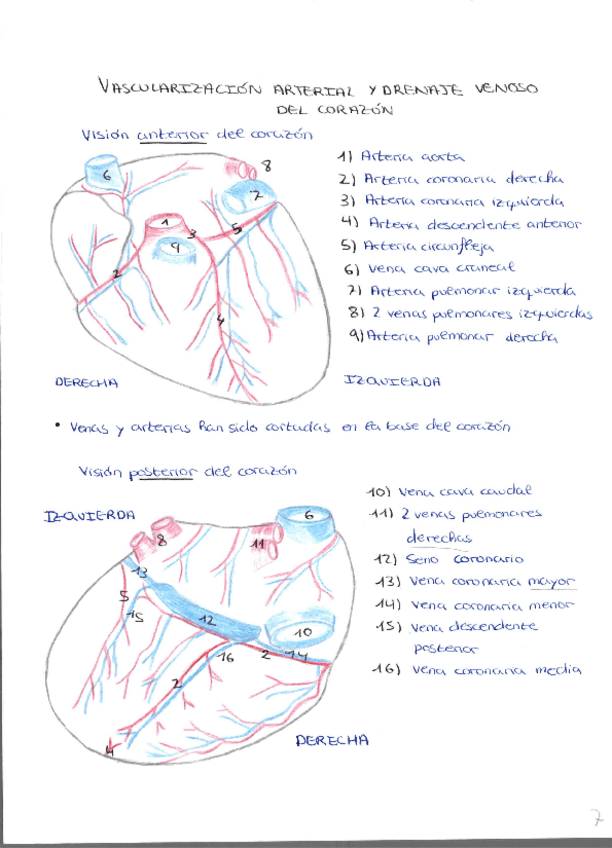 VASCULARIZACIÓN ARTERIAL Y DRENAJE VENOSO
DEL CORAZÓN
Visión anterior del corazón
1) Arteria aorta
2) Arteria coronaria derecha
3) Arteria coronaria izquierda
4) Arteria descendente anterior
5) Arteria circunfleja
6) Vena cava craneal
7) Arteria pulmonar izquierda
8) 2 venas pulmonares izquierdas
9) Arteria pulmonar derecha
6
8
7
1
3
5
9
2
4
DERECHA
IZQUIERDA
• Venas y arterias han sido cortadas en la base del corazón
Visión posterior del corazón
IZQUIERDA
10) Vena cava caudal
11) 2 venas pulmonares
derechas
12) Seno coronario
13) Vena coronaria mayor
14) Vena coronaria menor
15) Vena descendente
posterior
16) Vena coronaria media
6
8
11
13
5
15
12
10
16
2
14
2
4
DERECHA
7